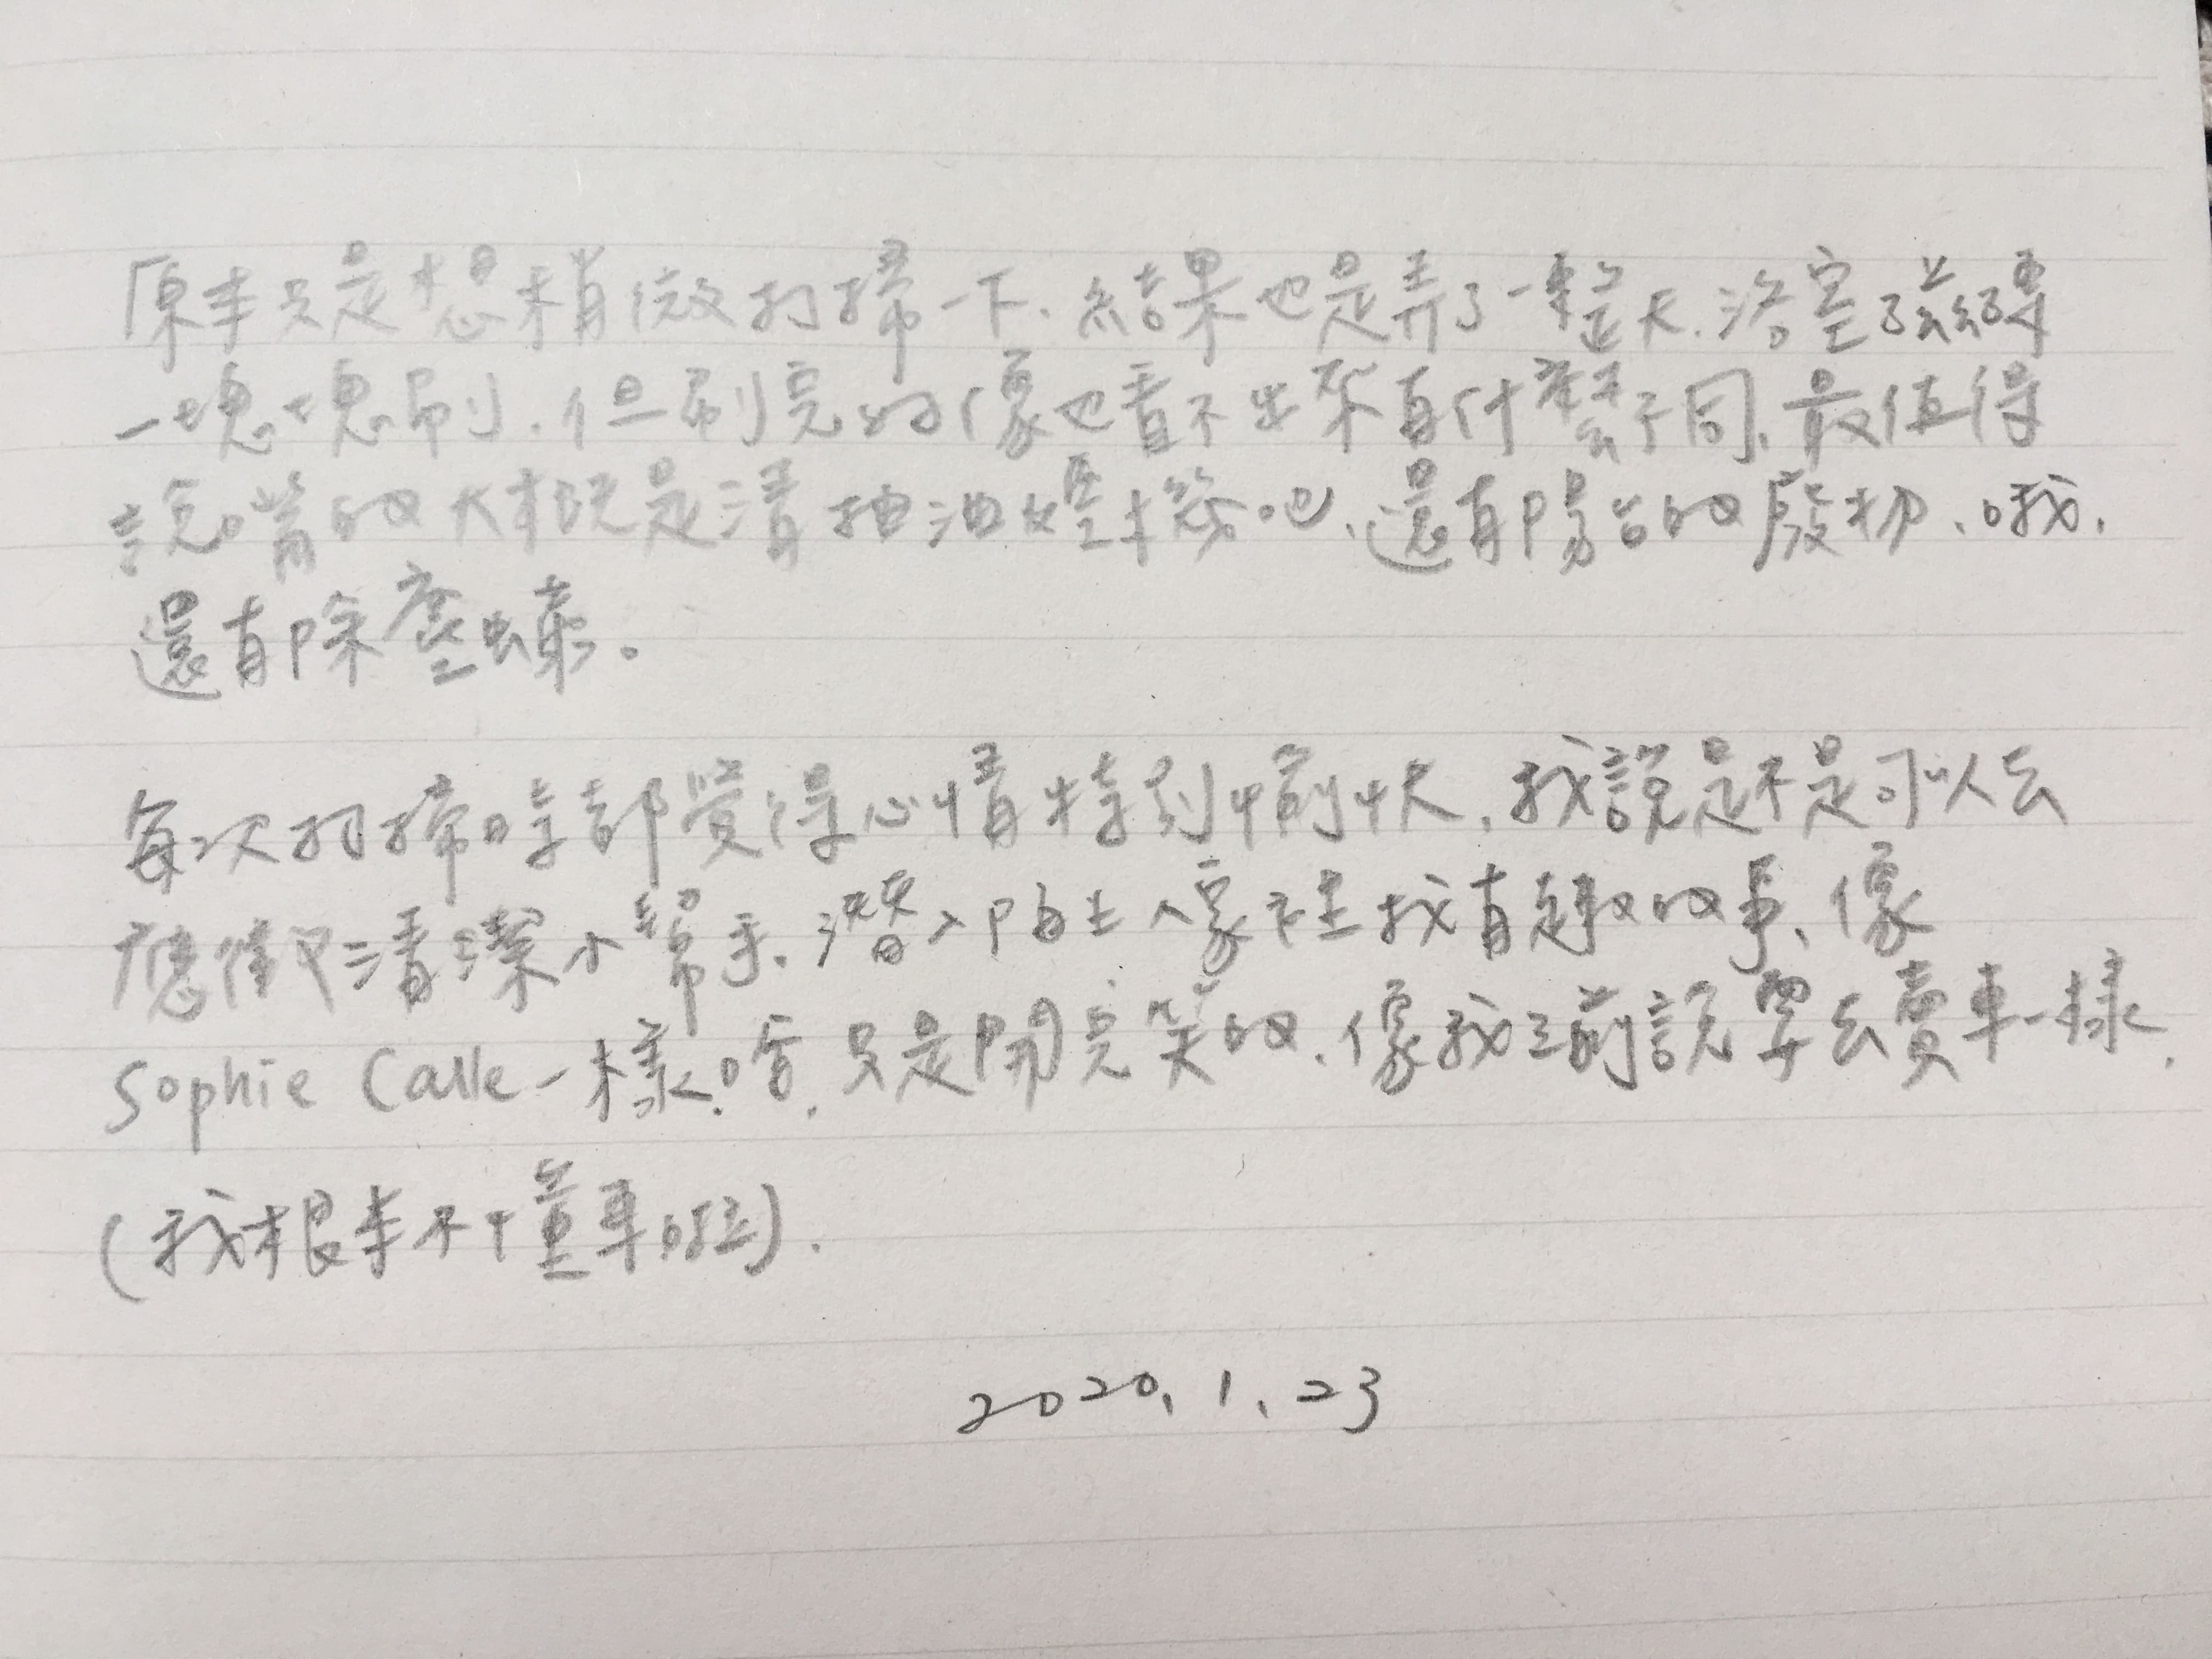 原本只是想稍微打掃一下、結果也是弄了一整天.浴室磁磚
一塊一塊刷、但刷完好像也看不出來有什麼不同、最值得
說嘴的大概是清抽油煙機吧、還有陽台的廢物、哦、
還有除塵蟎。
每次打掃時都覺得心情特別愉快、我說是不是可以去
應徵清潔小幫手、潛入陌生人家裡找有趣的事、像
Sophie Calle一樣.哈.只是開完笑的、像我之前說要去賣車一樣、
(我根本不懂車啦).
2020、1、23